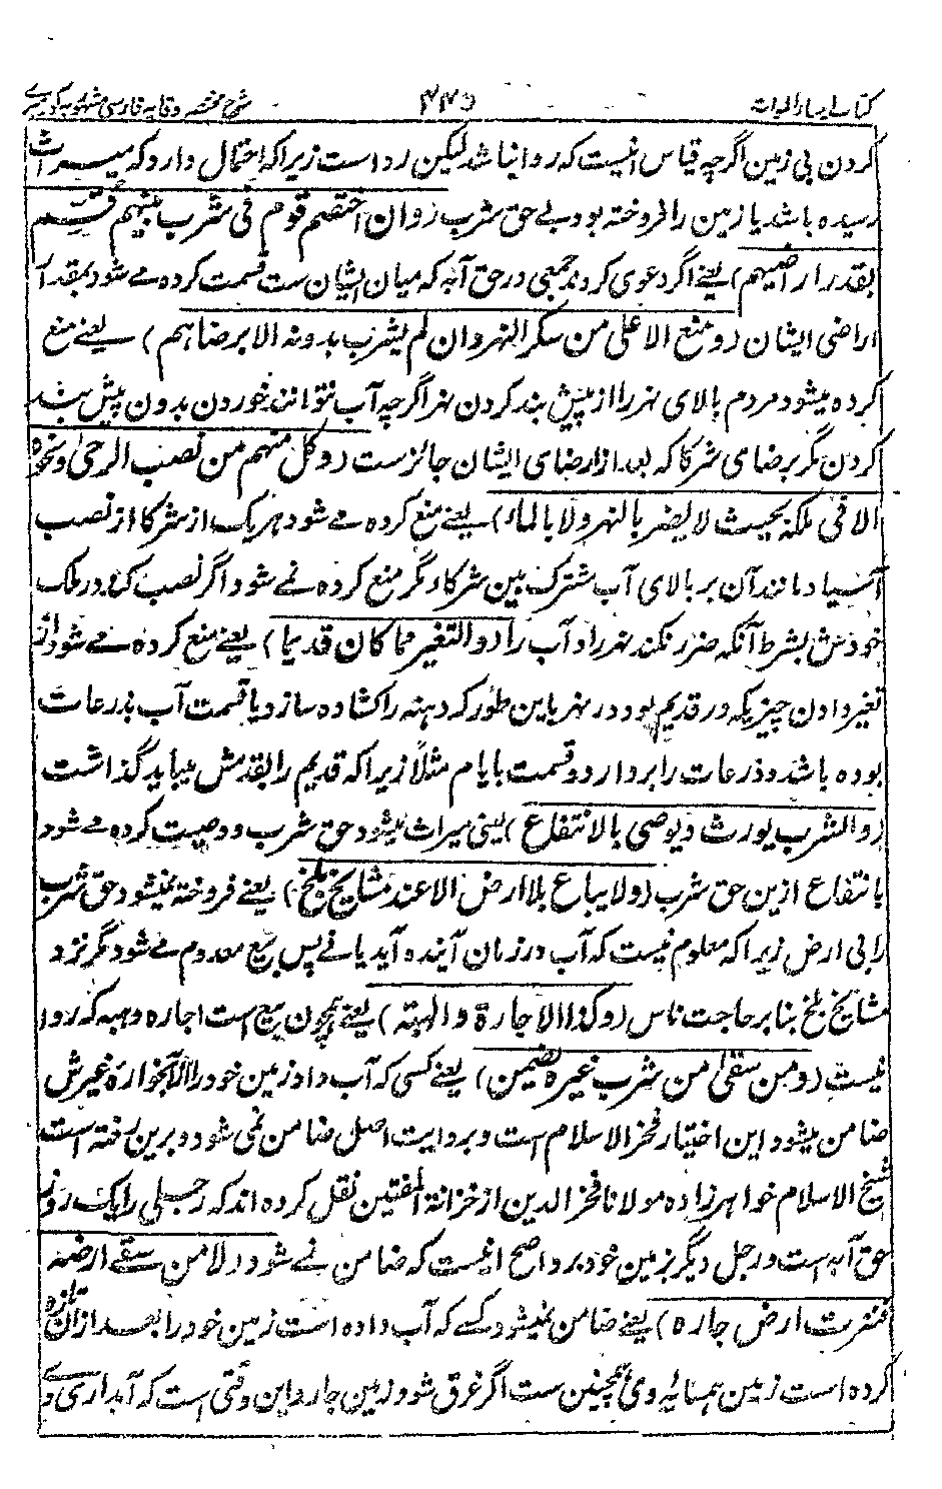 کتاب احیاء الموات ۴۴۵ شرح مختصر وقایه فارسی مشهور به
کردن بی زمین اگرچه قیاس انیست که روا نباشد لیکن رواست زیراکه احتمال دارد که میراث
رسیده باشد یا زمین را فروخته بود بے حق شرب (وان اختصم قوم فی شرب بینهم قسم
بقدر اراضیهم) یعنے اگر دعوی کردند جمعی در حق آبه که میان ایشان ست قسمت کرده مے شود بمقدار
اراضی ایشان (ومنع الاعلی من سکر النهر وان لم یشرب بدونه الا برضاهم) یعنے منع
کرده میشود مردم بالای نهر را از پیش بند کردن نهر اگرچه آب نتوانند خوردن بدون پیش بند
کردن مگر برضای شرکا که بعد از رضای ایشان جائزست (وکل منهم من نصب الرحی ونحوه
الا فی ملکه بحیث لا یضر بالنهر ولا بالماء) یعنے منع کرده مے شود هر یک از شرکا از نصب
آسیا و مانند آن بر بالای آب مشترک بین شرکا و مگر منع کرده نے شود اگر نصب کند در ملک
خودش بشرط آنکه ضرر نکند نهر را و آب را (والتغیر عما کان قدیما) یعنے منع کرده مے شود از
تغیر دادن چیزیکه در قدیم بود در نهر باین طور که دهنه را کشاده سازد یا قسمت آب بذرعات
بوده باشد و ذرعات را بردارد و قسمت بایام مثلاً زیراکه قدیم را بقدمش میباید گذاشت
(والشرب یورث ویوصی بالانتفاع) یعنی میراث میشود حق شرب و وصیت کرده مے شود
بانتفاع ازین حق شرب (ولا یباع بلا ارض الا عند مشایخ بلخ) یعنے فروخته نمیشود حق شرب
را بی ارض زیراکه معلوم نیست که آب در زمان آینده آید یا نے پس بیع معدوم مے شود مگر نزد
مشایخ بلخ بنا بر حاجت ناس (وکذا الاجارة والهبة) یعنے همچون بیع است اجاره و هبه که روا
نیست (ومن سقی من شرب غیره یضمن) یعنے کسی که آب داد زمین خود را از آبخوارهٔ غیرش
ضامن میشود این اختیار فخر الاسلام است و بروایت اصل ضامن نمی شود و برین رفته است
شیخ الاسلام خواهرزاده مولانا فخر الدین از خزانة المفتین نقل کرده اند که رجلی را یک روز
حق آبه است و رجل دیگر بزمین خود برد اصح انیست که ضامن نے شود (لا من سقے ارضه
فنزت ارض جاره) یعنے ضامن نمیشود کسے که آب داده است زمین خود را بعد از آن تازه
کرده است زمین همسایه وی همچنین ست اگر غرق شود زمین جار و این وقتی است که آبداری